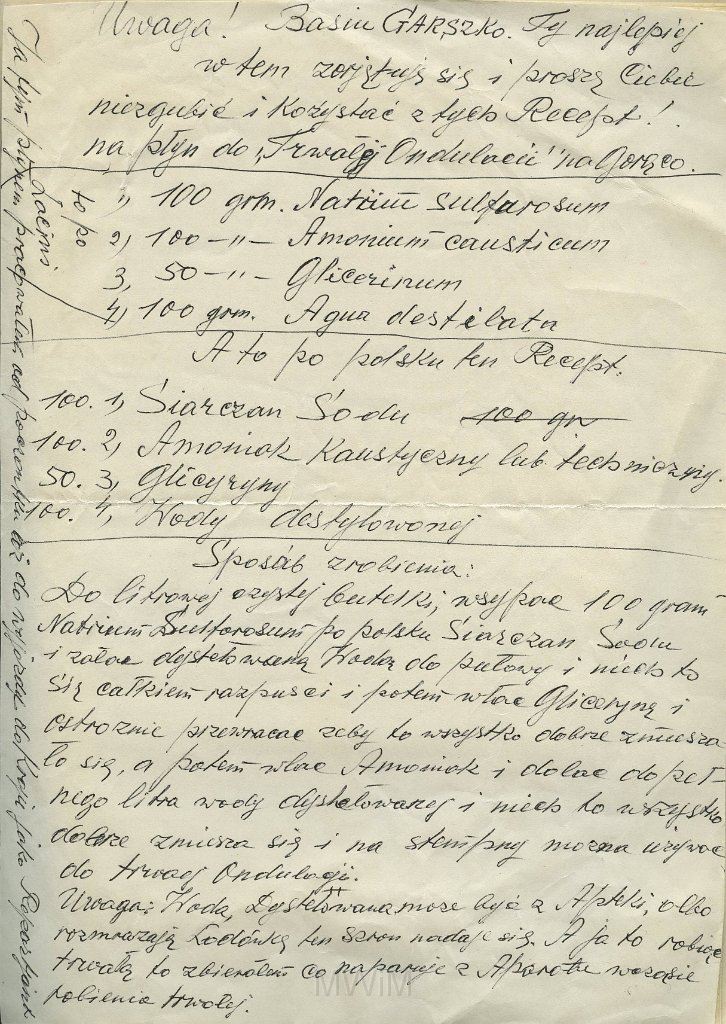 Uwaga! Basiu GARSZKO. Ty najlepiej
w tem zorjętują się i proszę Ciebie
niezgubić i Kozystać z tych Recept!
na płyn do „Trwałej Ondulacii" na Gorąco.
1, 100 grm. Natrium Sulfurosum
2, 100 -"- Amonium causticum
3, 50 -"- Glicerinum
4, 100 grm. Agua destilata
to po
Łacinś
A to po polsku ten Recept:
100. 1, Siarczan Sodu 100 gr
100. 2, Amoniak Kaustyczny lub. techniczny.
50. 3, Glicyryny
100. 4, Wody destylowonej
Sposób zrobienia:
Do litrowej czystej butelki, wsypac 100 gram
Natrium Sulforosum po polsku Siarczan Sodu
i zalac dystelowaną Wodą do pułowy i niech to
się całkiem razpusci i potem wlac Gliceryną i
ostroznie przewracac zeby to wszystko dobrze zmiesza
ło się, a potem wlac Amoniak i dolac do peł-
nego litra wody dystelowanej i niech to wszystko
dobrze zmiesza się i na stempny mozna uzywac
do trwaej Ondulacji.
Uwaga: Woda, Dystelowana moze być z Apteki, olbo
rozmrazają Lodówkę ten Szron nadaje się. A ja to robiąc
trwałą to zbierółem co naparuje z Aparotu wczasie
robienia trwołej.
Ja tym płynem pracowałem od poczontku aż do wyjazdu do Kraju jako Repastjant
MWiM